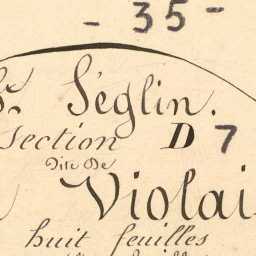 - 35 -
Sr Séglin.
Section D 7
dite de
Violai
huit feuilles